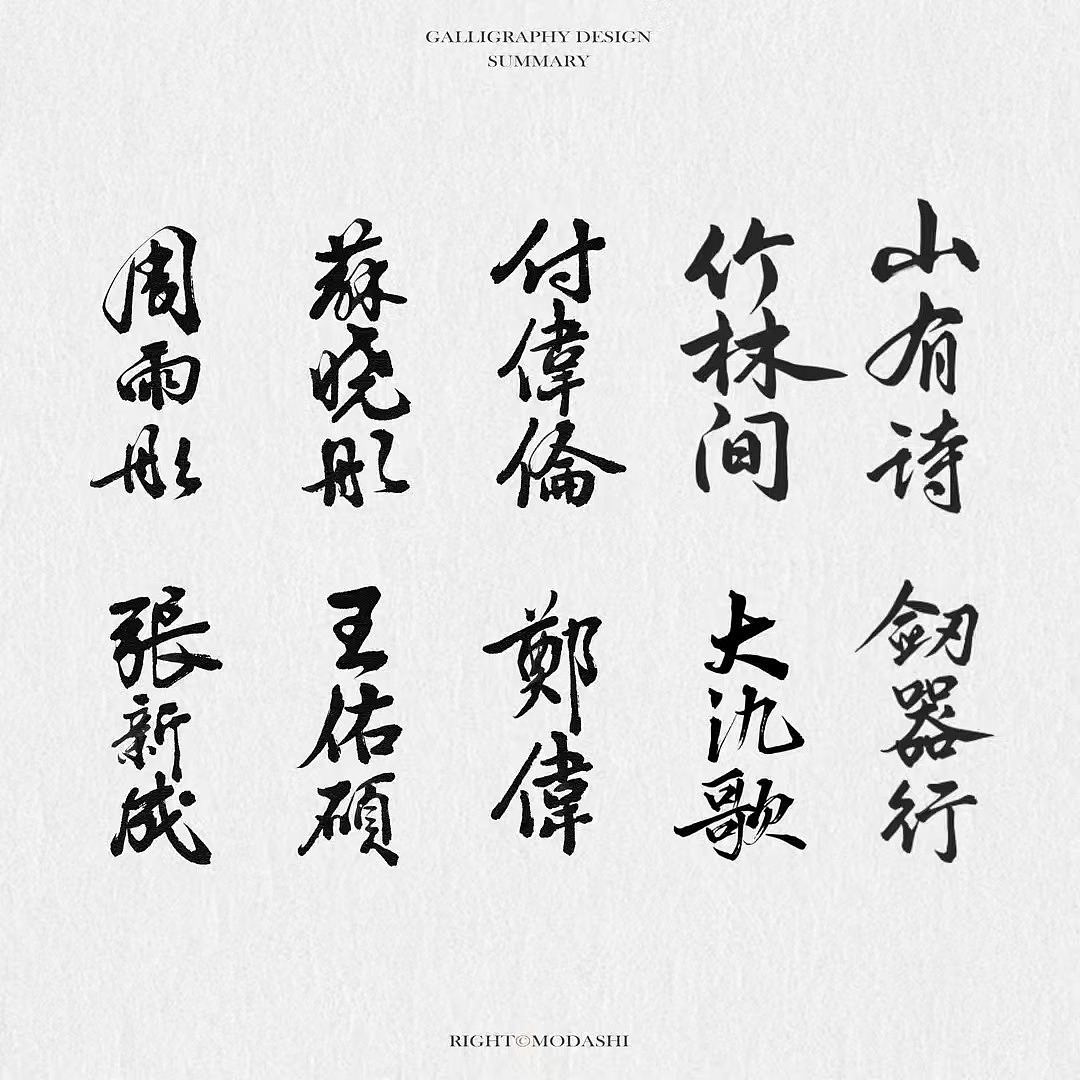 GALLIGRAPHY DESIGN
SUMMARY
山有诗
竹林间
付偉倫
蘇晓彤
周雨彤
劒器行
大氿歌
鄭偉
王佑碩
張新成
RIGHT©MODASHI